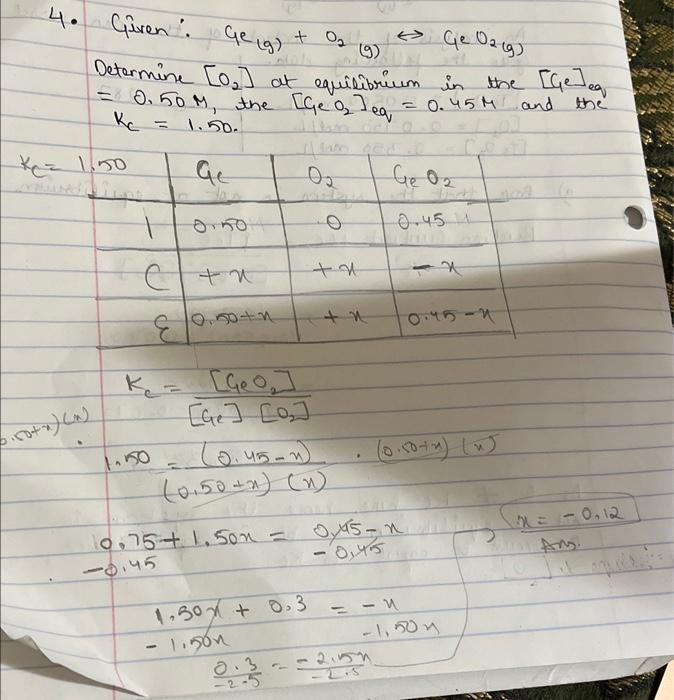 4. Given: Ge(g) + O2(g) ↔ GeO2(g)
Determine [O2] at equilibrium in the [Ge]eq
= 0.50 M, the [GeO2]eq = 0.45M and the
Kc = 1.50.
Kc = 1.50 Ge O2 GeO2
I 0.50 0 0.45
C + x + x - x
E 0.50+x + x 0.45-x
Kc = [GeO2]
[Ge] [O2]
.50+x)(x)
1.50 = (0.45-x) . (0.50+x) (x)
(0.50+x) (x)
0.75 + 1.50x = 0.45-x
-0.45 -0.45
x = -0.12
Ans.
1.50x + 0.3 = -x
-1.50x -1.50x
0.3 = -2.5x
-2.5 -2.5